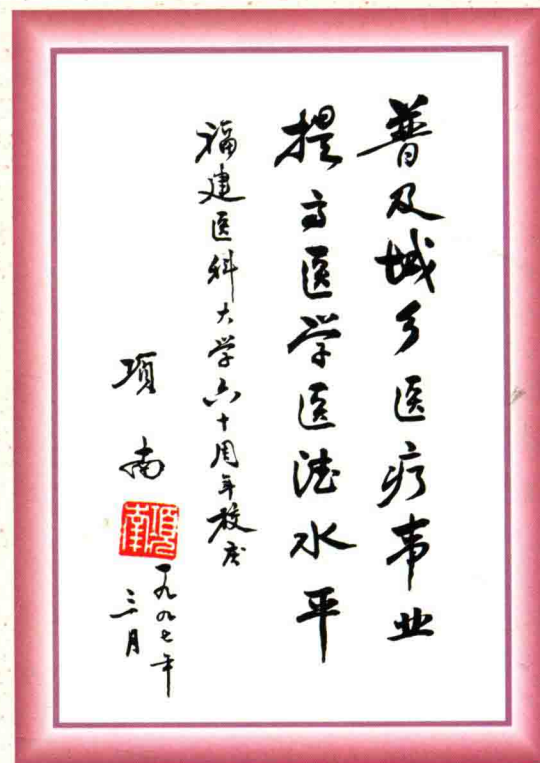 普及城乡医疗事业
提高医学医德水平
福建医科大学六十周年校庆
项南
项南
一九九七年
三月